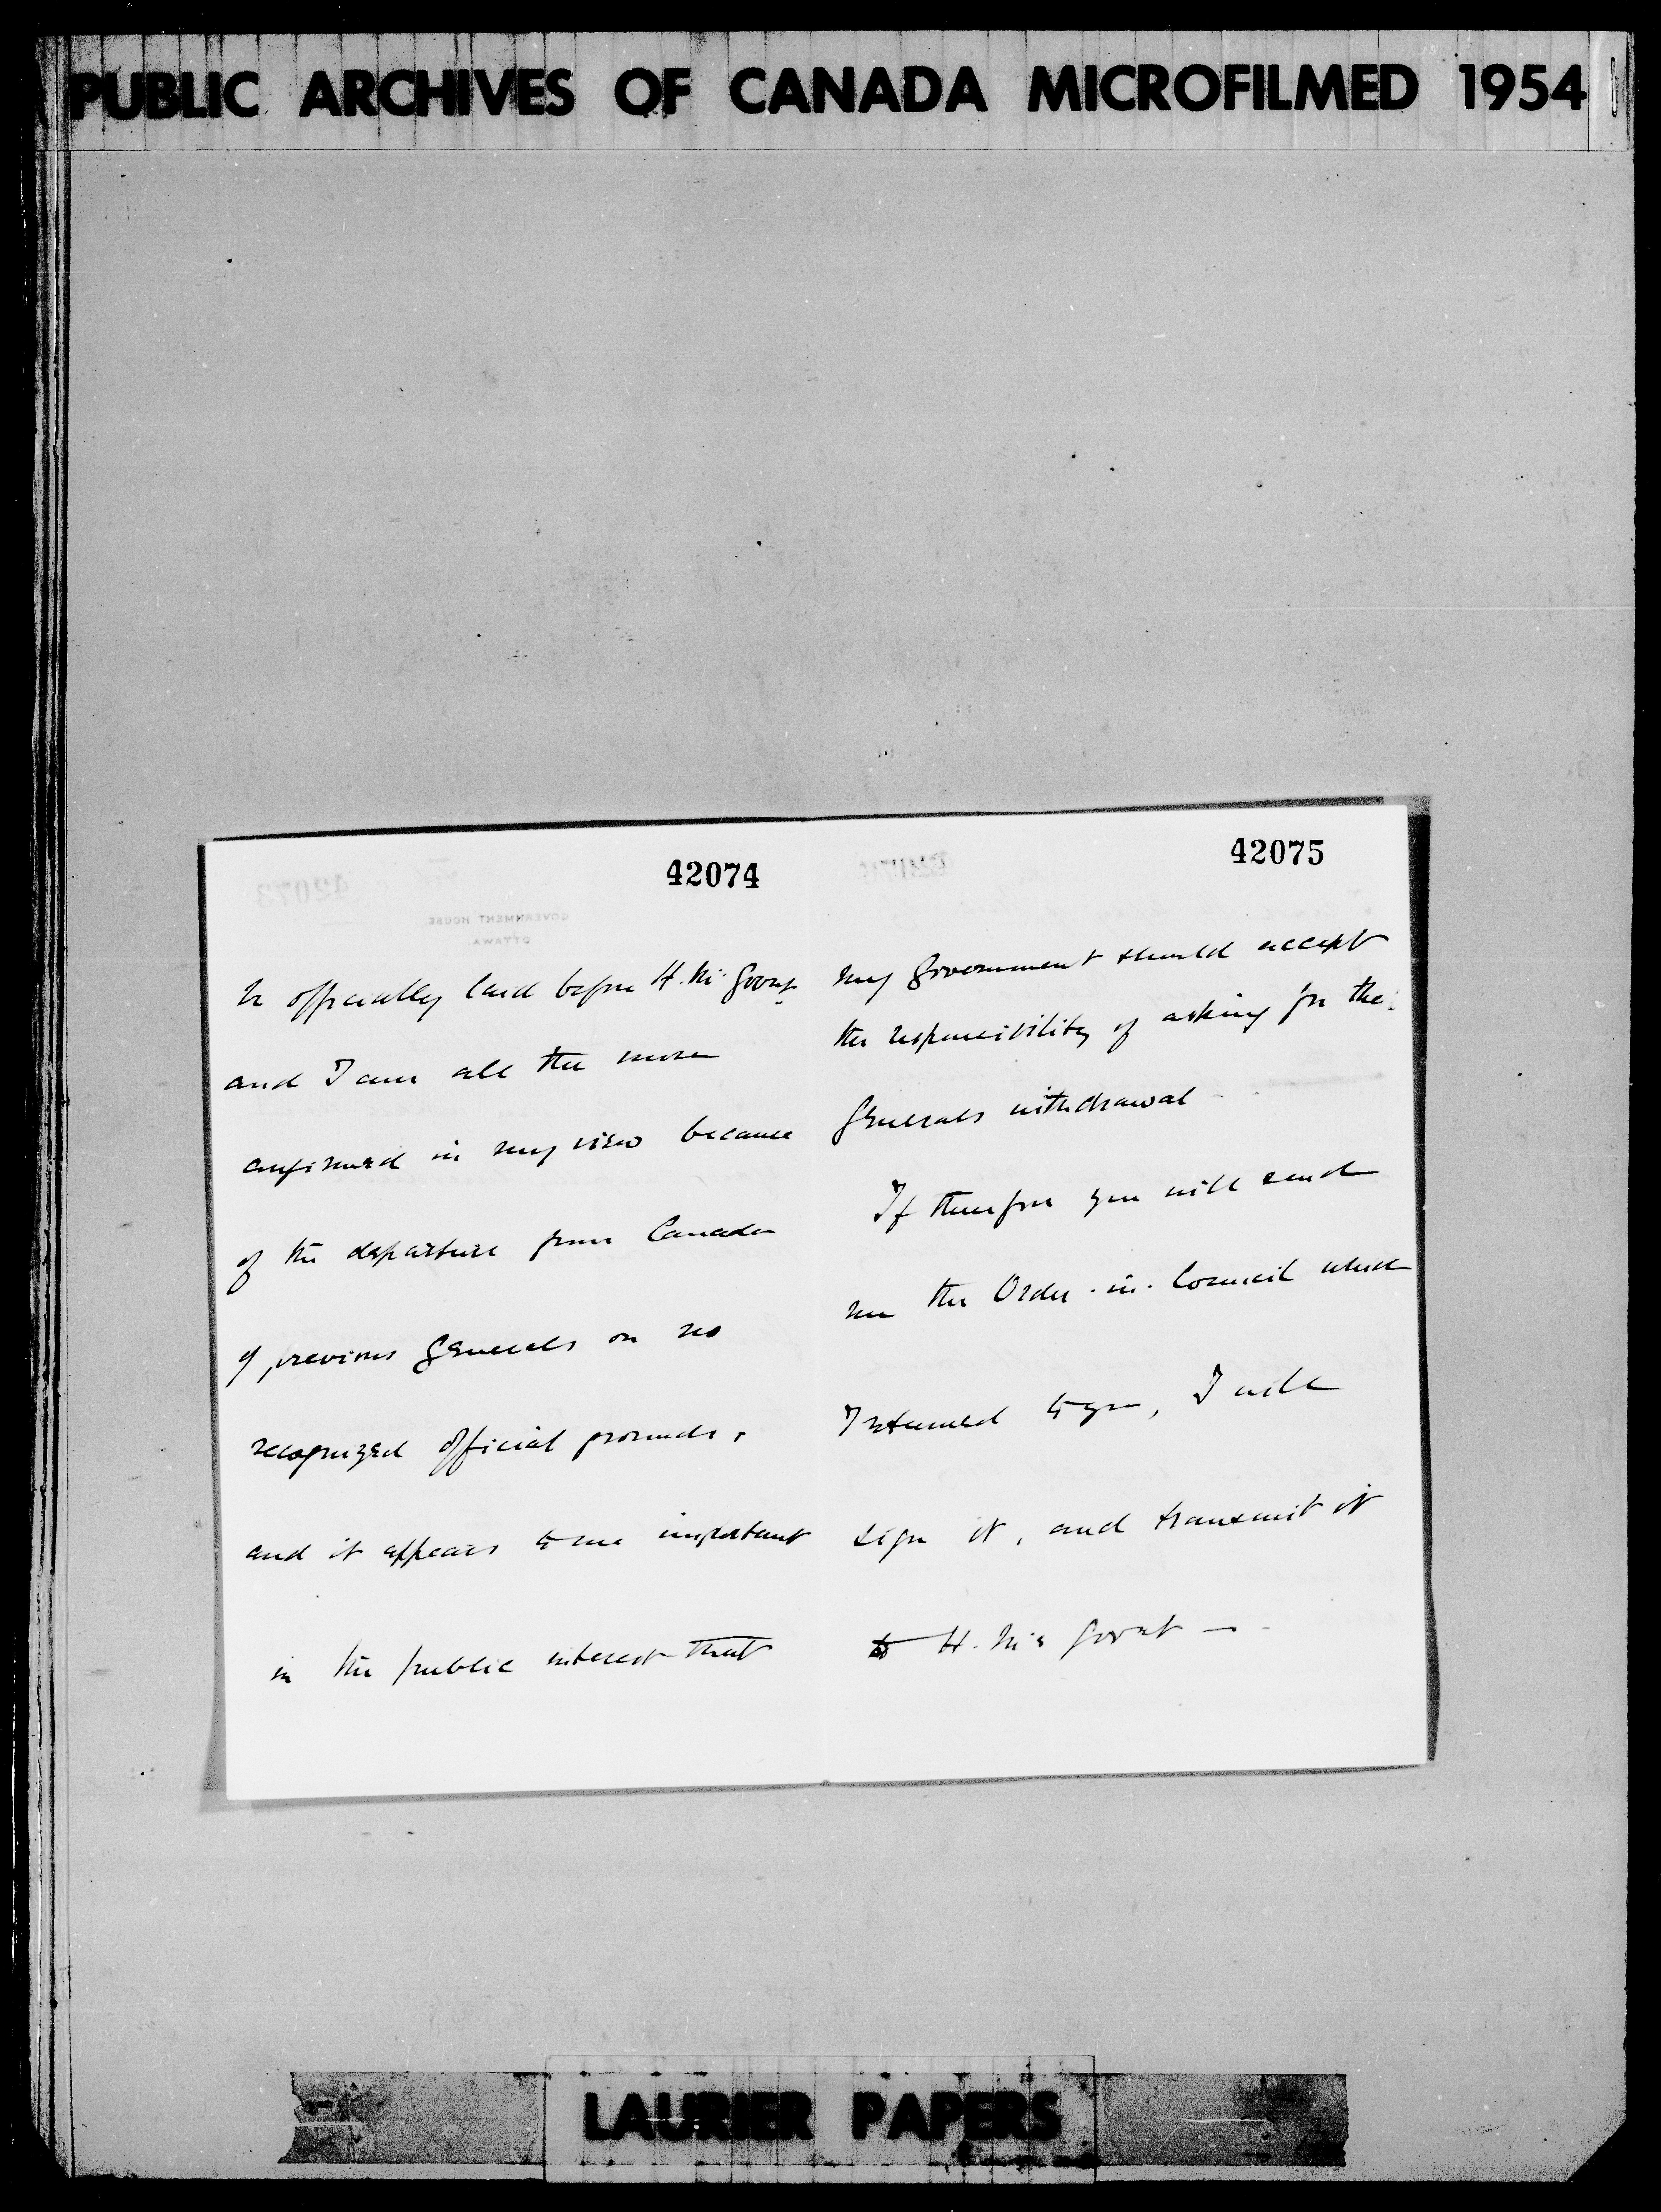 PUBLIC ARCHIVES OF CANADA MICROFILMED 1954
42074
be officially laid before H. M's Govnt.
and I am all the more
confirmed in my view because
of the departure from Canada
of previous Generals on no
recognized official grounds,
and it appears to me important
in the public interest that
42075
my Government should accept
the responsibility of asking for the
Generals withdrawal
If therefore you will send
me the Order-in-Council which
I returned to you, I will
sign it, and transmit it
to H. M's Govnt —
GOVERNMENT HOUSE.
OTTAWA
42073
LAURIER PAPERS